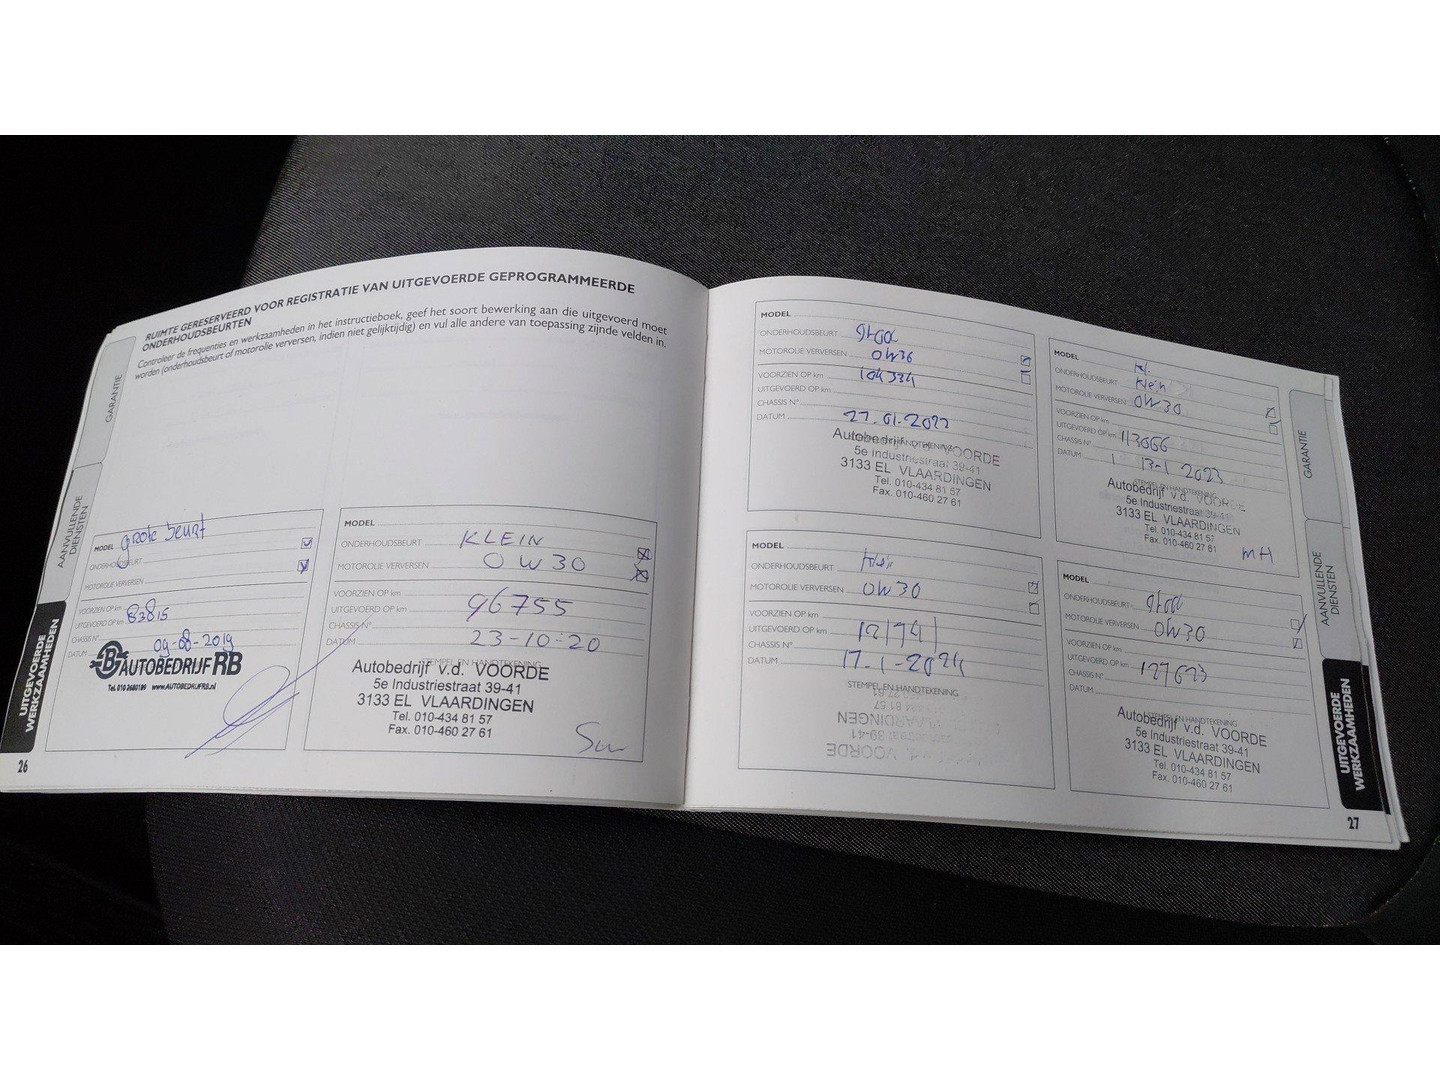 RUIMTE GERESERVEERD VOOR REGISTRATIE VAN UITGEVOERDE GEPROGRAMMEERDE
ONDERHOUDSBEURTEN
Controleer de frequenties en werkzaamheden in het instructieboek, geef het soort bewerking aan die uitgevoerd moet
worden (onderhoudsbeurt of motorolie verversen, indien niet gelijktijdig) en vul alle andere van toepassing zijnde velden in.
GARANTIE
AANVULLENDE
DIENSTEN
UITGEVOERDE
WERKZAAMHEDEN
MODEL grote beurt
ONDERHOUDSBEURT
MOTOROLIE VERVERSEN
VOORZIEN OP km
UITGEVOERD OP km 83815
CHASSIS N°
DATUM 09-08-2019
AUTOBEDRIJF RB
Tel. 010 2680189 www.AUTOBEDRIJFRB.nl
26
MODEL
ONDERHOUDSBEURT KLEIN
MOTOROLIE VERVERSEN 0W30
VOORZIEN OP km
UITGEVOERD OP km 96755
CHASSIS N°
DATUM 23-10-20
STEMPEL EN HANDTEKENING
Autobedrijf v.d. VOORDE
5e Industriestraat 39-41
3133 EL VLAARDINGEN
Tel. 010-434 81 57
Fax. 010-460 27 61
MODEL
ONDERHOUDSBEURT groot
MOTOROLIE VERVERSEN 0W30
VOORZIEN OP km 104334
UITGEVOERD OP km
CHASSIS N°
DATUM 27-01-2022
Autobedrijf v.d. VOORDE
5e Industriestraat 39-41
3133 EL VLAARDINGEN
Tel. 010-434 81 57
Fax. 010-460 27 61
MODEL kl.
ONDERHOUDSBEURT klein
MOTOROLIE VERVERSEN 0W30
VOORZIEN OP km
UITGEVOERD OP km 113066
CHASSIS N°
DATUM 13-1 2023
STEMPEL EN HANDTEKENING
Autobedrijf v.d. VOORDE
5e Industriestraat 39-41
3133 EL VLAARDINGEN
Tel. 010-434 81 57
Fax. 010-460 27 61
MH
MODEL
ONDERHOUDSBEURT klein
MOTOROLIE VERVERSEN 0W30
VOORZIEN OP km
UITGEVOERD OP km
CHASSIS N°
DATUM 17-1-2024
STEMPEL EN HANDTEKENING
VLAARDINGEN
39-41
VOORDE
MODEL
ONDERHOUDSBEURT groot
MOTOROLIE VERVERSEN 0W30
VOORZIEN OP km
UITGEVOERD OP km 127623
CHASSIS N°
DATUM
STEMPEL EN HANDTEKENING
Autobedrijf v.d. VOORDE
5e Industriestraat 39-41
3133 EL VLAARDINGEN
Tel. 010-434 81 57
Fax. 010-460 27 61
GARANTIE
AANVULLENDE
DIENSTEN
UITGEVOERDE
WERKZAAMHEDEN
27